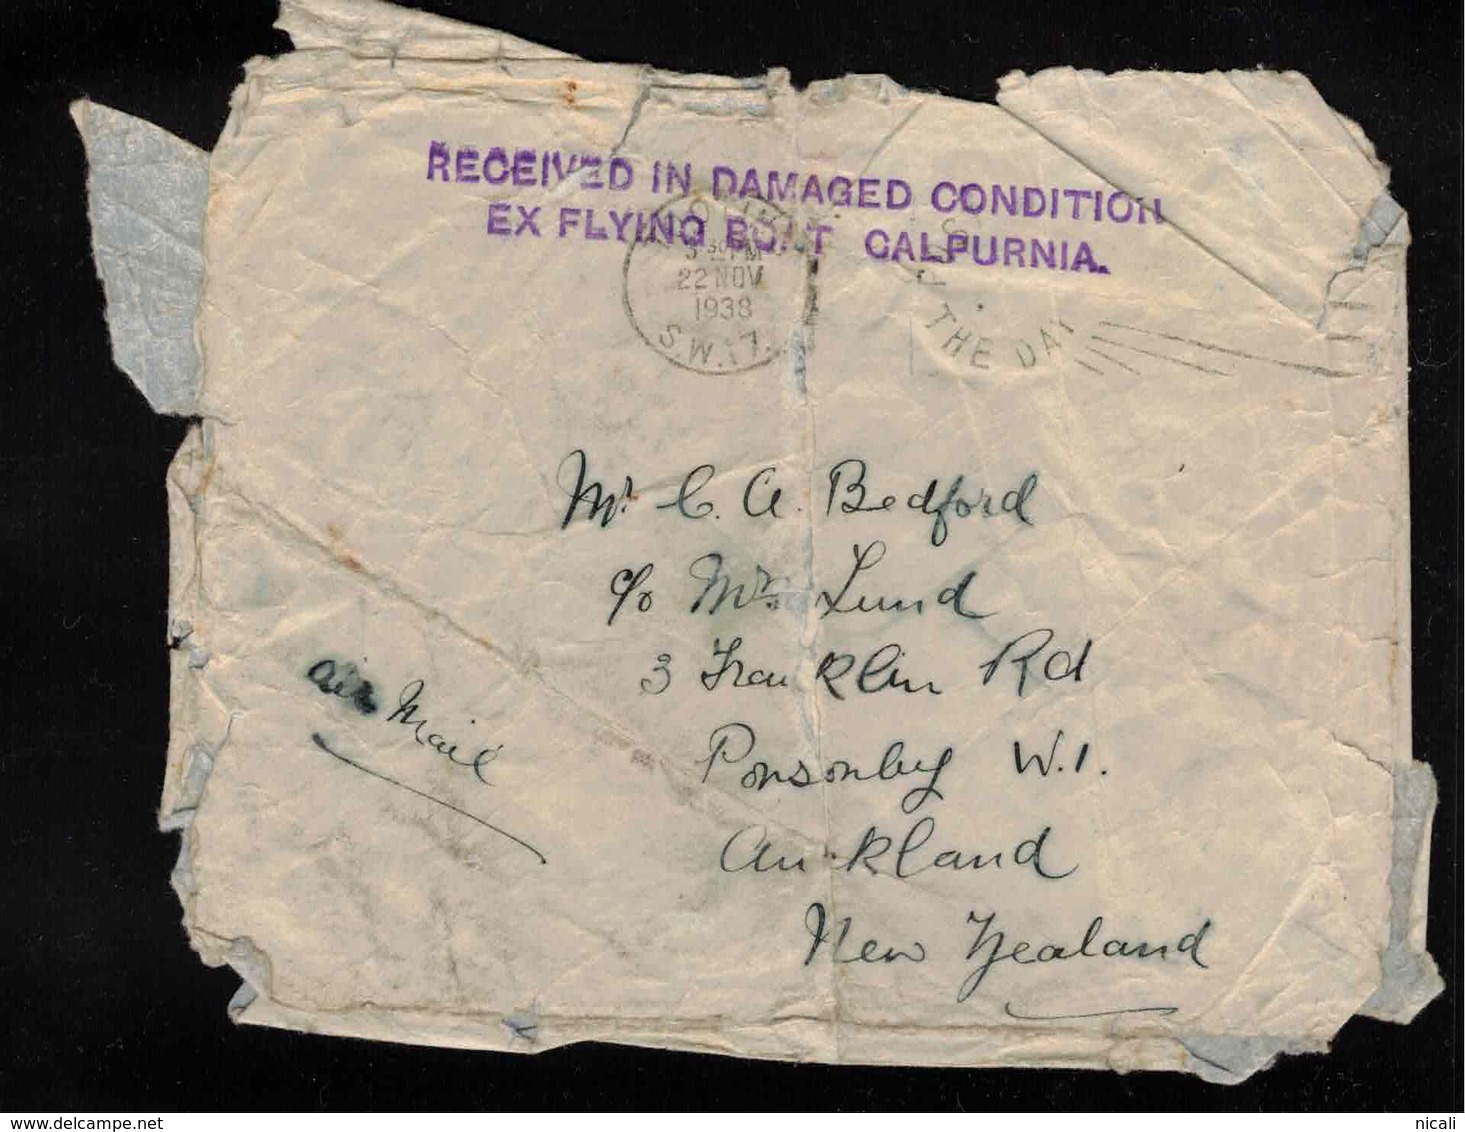 RECEIVED IN DAMAGED CONDITION
EX FLYING BOAT CALPURNIA.
30 PM
22 NOV
1938
S.W.17.
THE DAY
Mr. C. A. Bedford
c/o Mrs. Lund
3 Franklin Rd
Ponsonby W.1.
Auckland
New Zealand
Air Mail
nicali